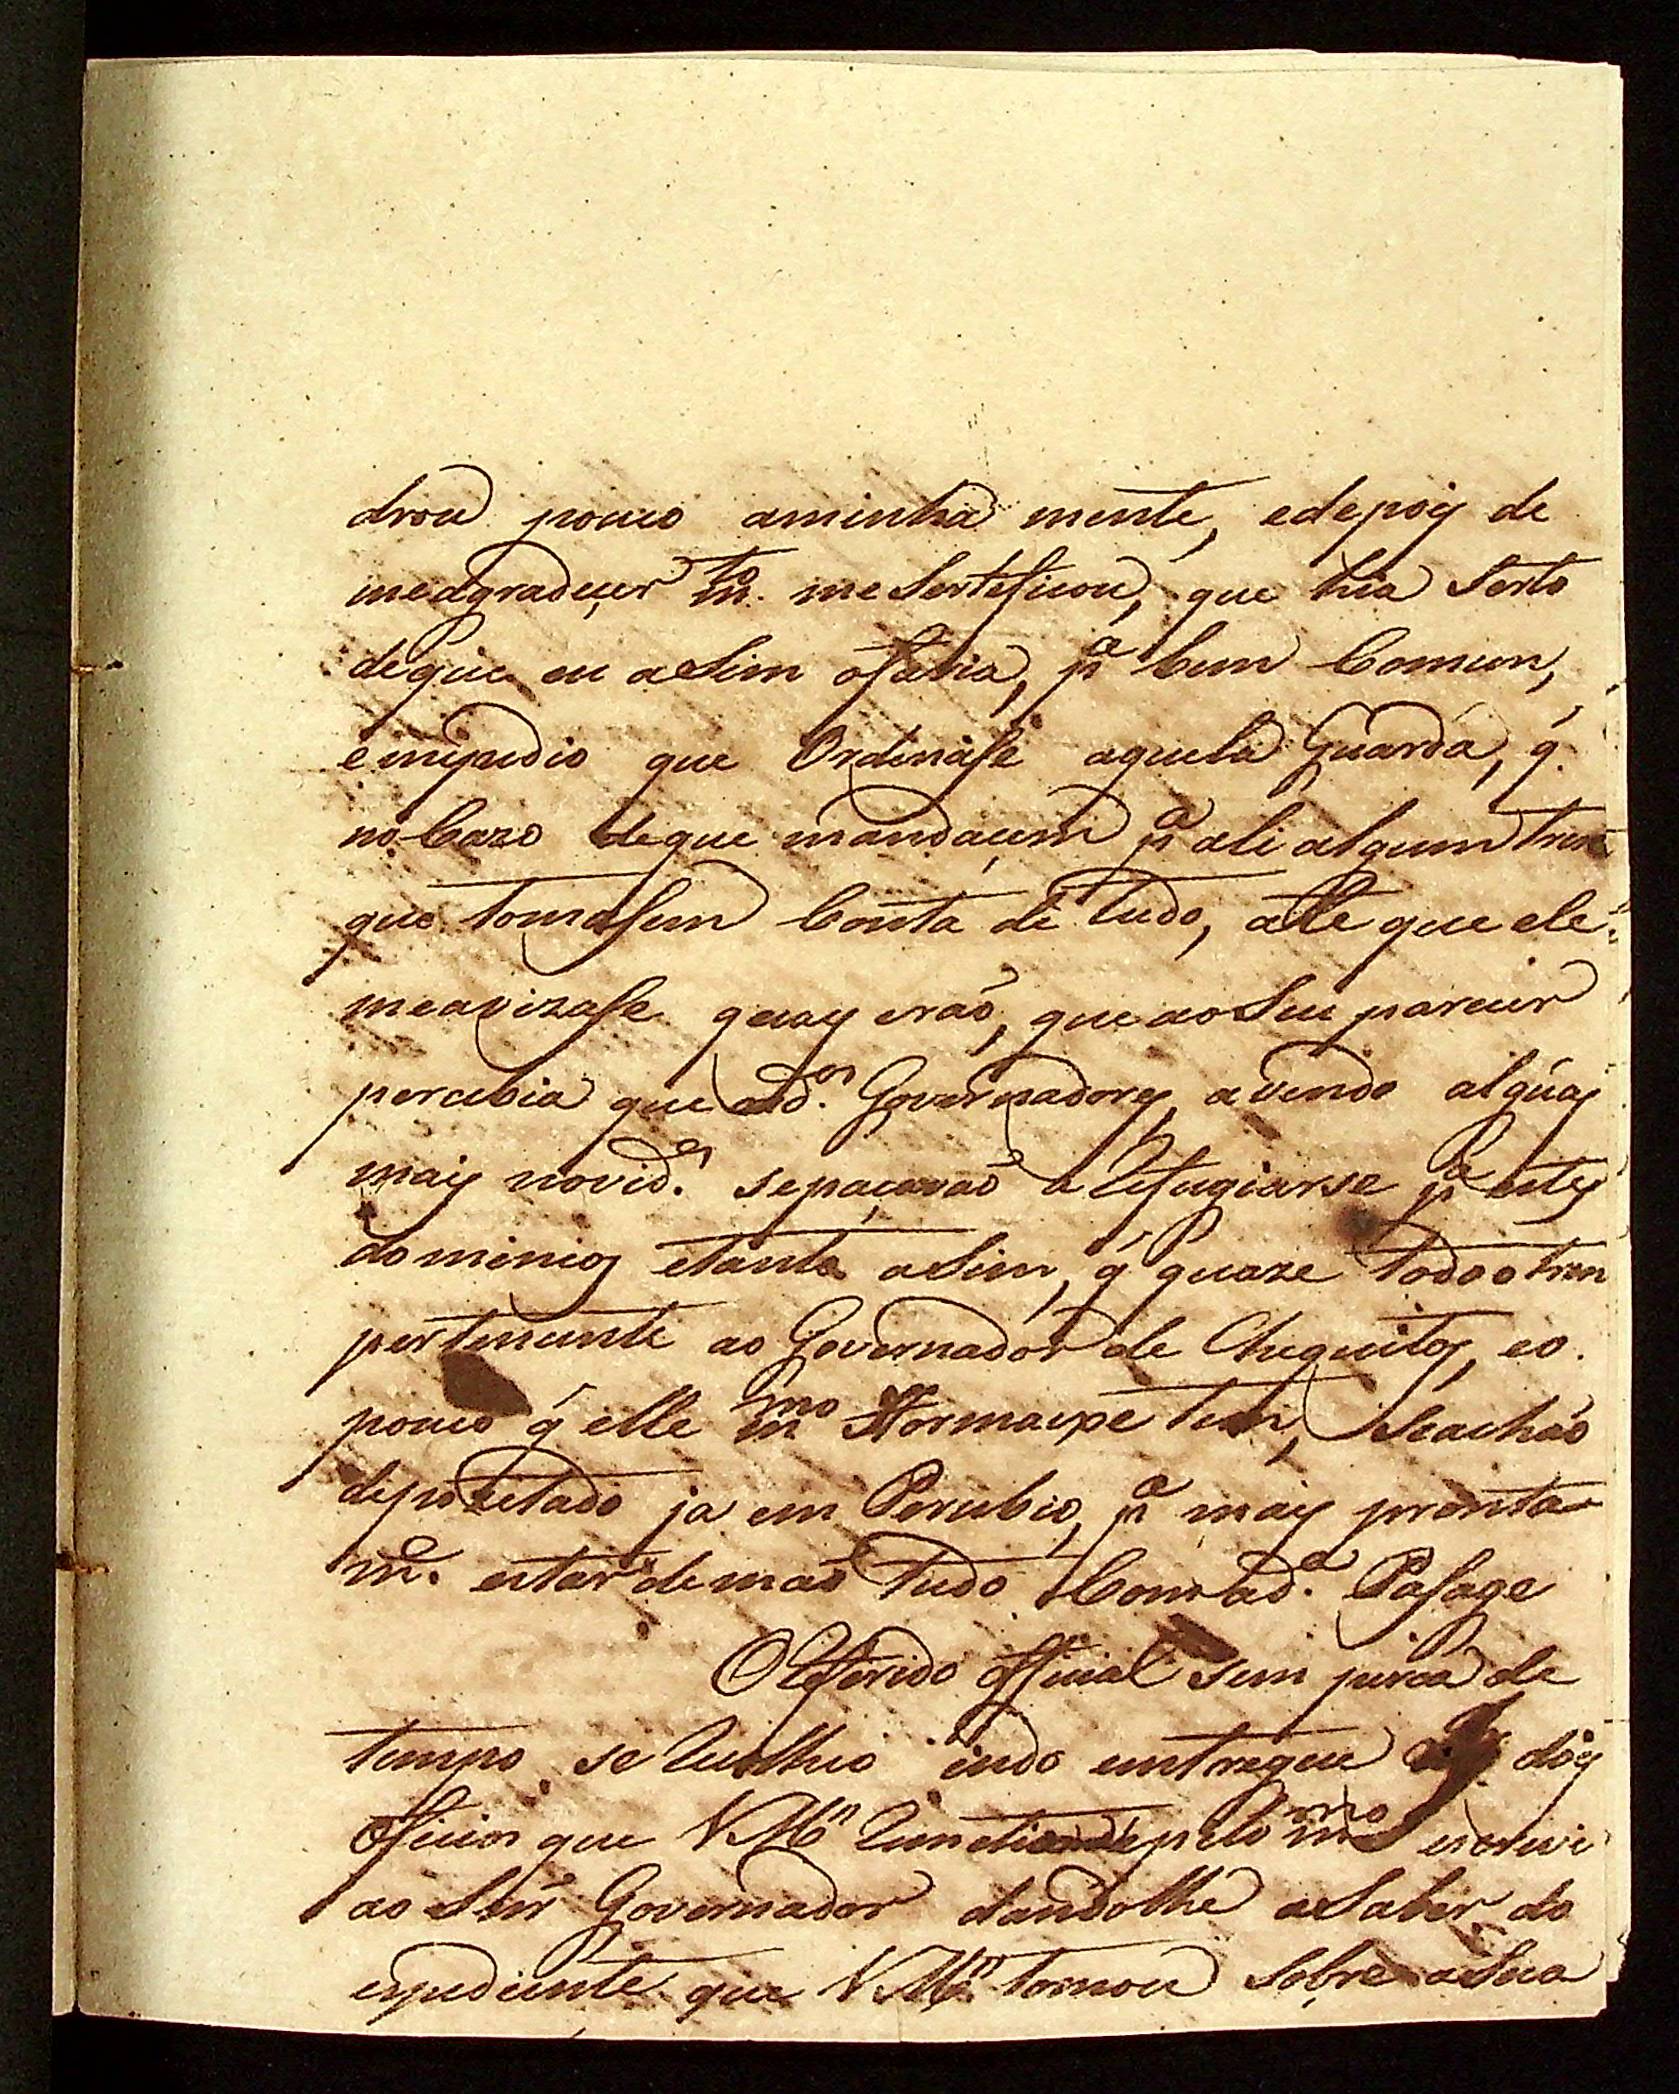 drou pouco aminha mente, edepois de
meagradecer m.to me Serteficou, que hia Serto
deque eu aSim ofaria, p.a bem Comum,
emepedio que Ordenáse aquela Guarda, q.
no Cazo deque mandaçem p.a ali algum trem
que tomasem Conta de tudo, athe que ele
meavizase quays erão, que ao Seu parecer
percebia que os d.os Governadores, avendo algúas
mais novid.es sepaçavaõ a Refugiarse p.a estes
dominios etanto aSim, q' quaze todo o trem
pertencente ao Governador de Chequitos, eo
pouco q' elle m.mo Hormaexe tem, Seachão
depozetado ja em Perubio, p.a mais pronta-
m.e estar demaõ tudo Com ad.a Pasage
O Referido official sem perca de
tempo se Recolheo indo entregue dos dois
oficios que V.M.ce Remetia pelo m.mo escrevi
ao Snr Governador dandolhe aSaber do
espediente que V.M.ce tomou Sobre aSua